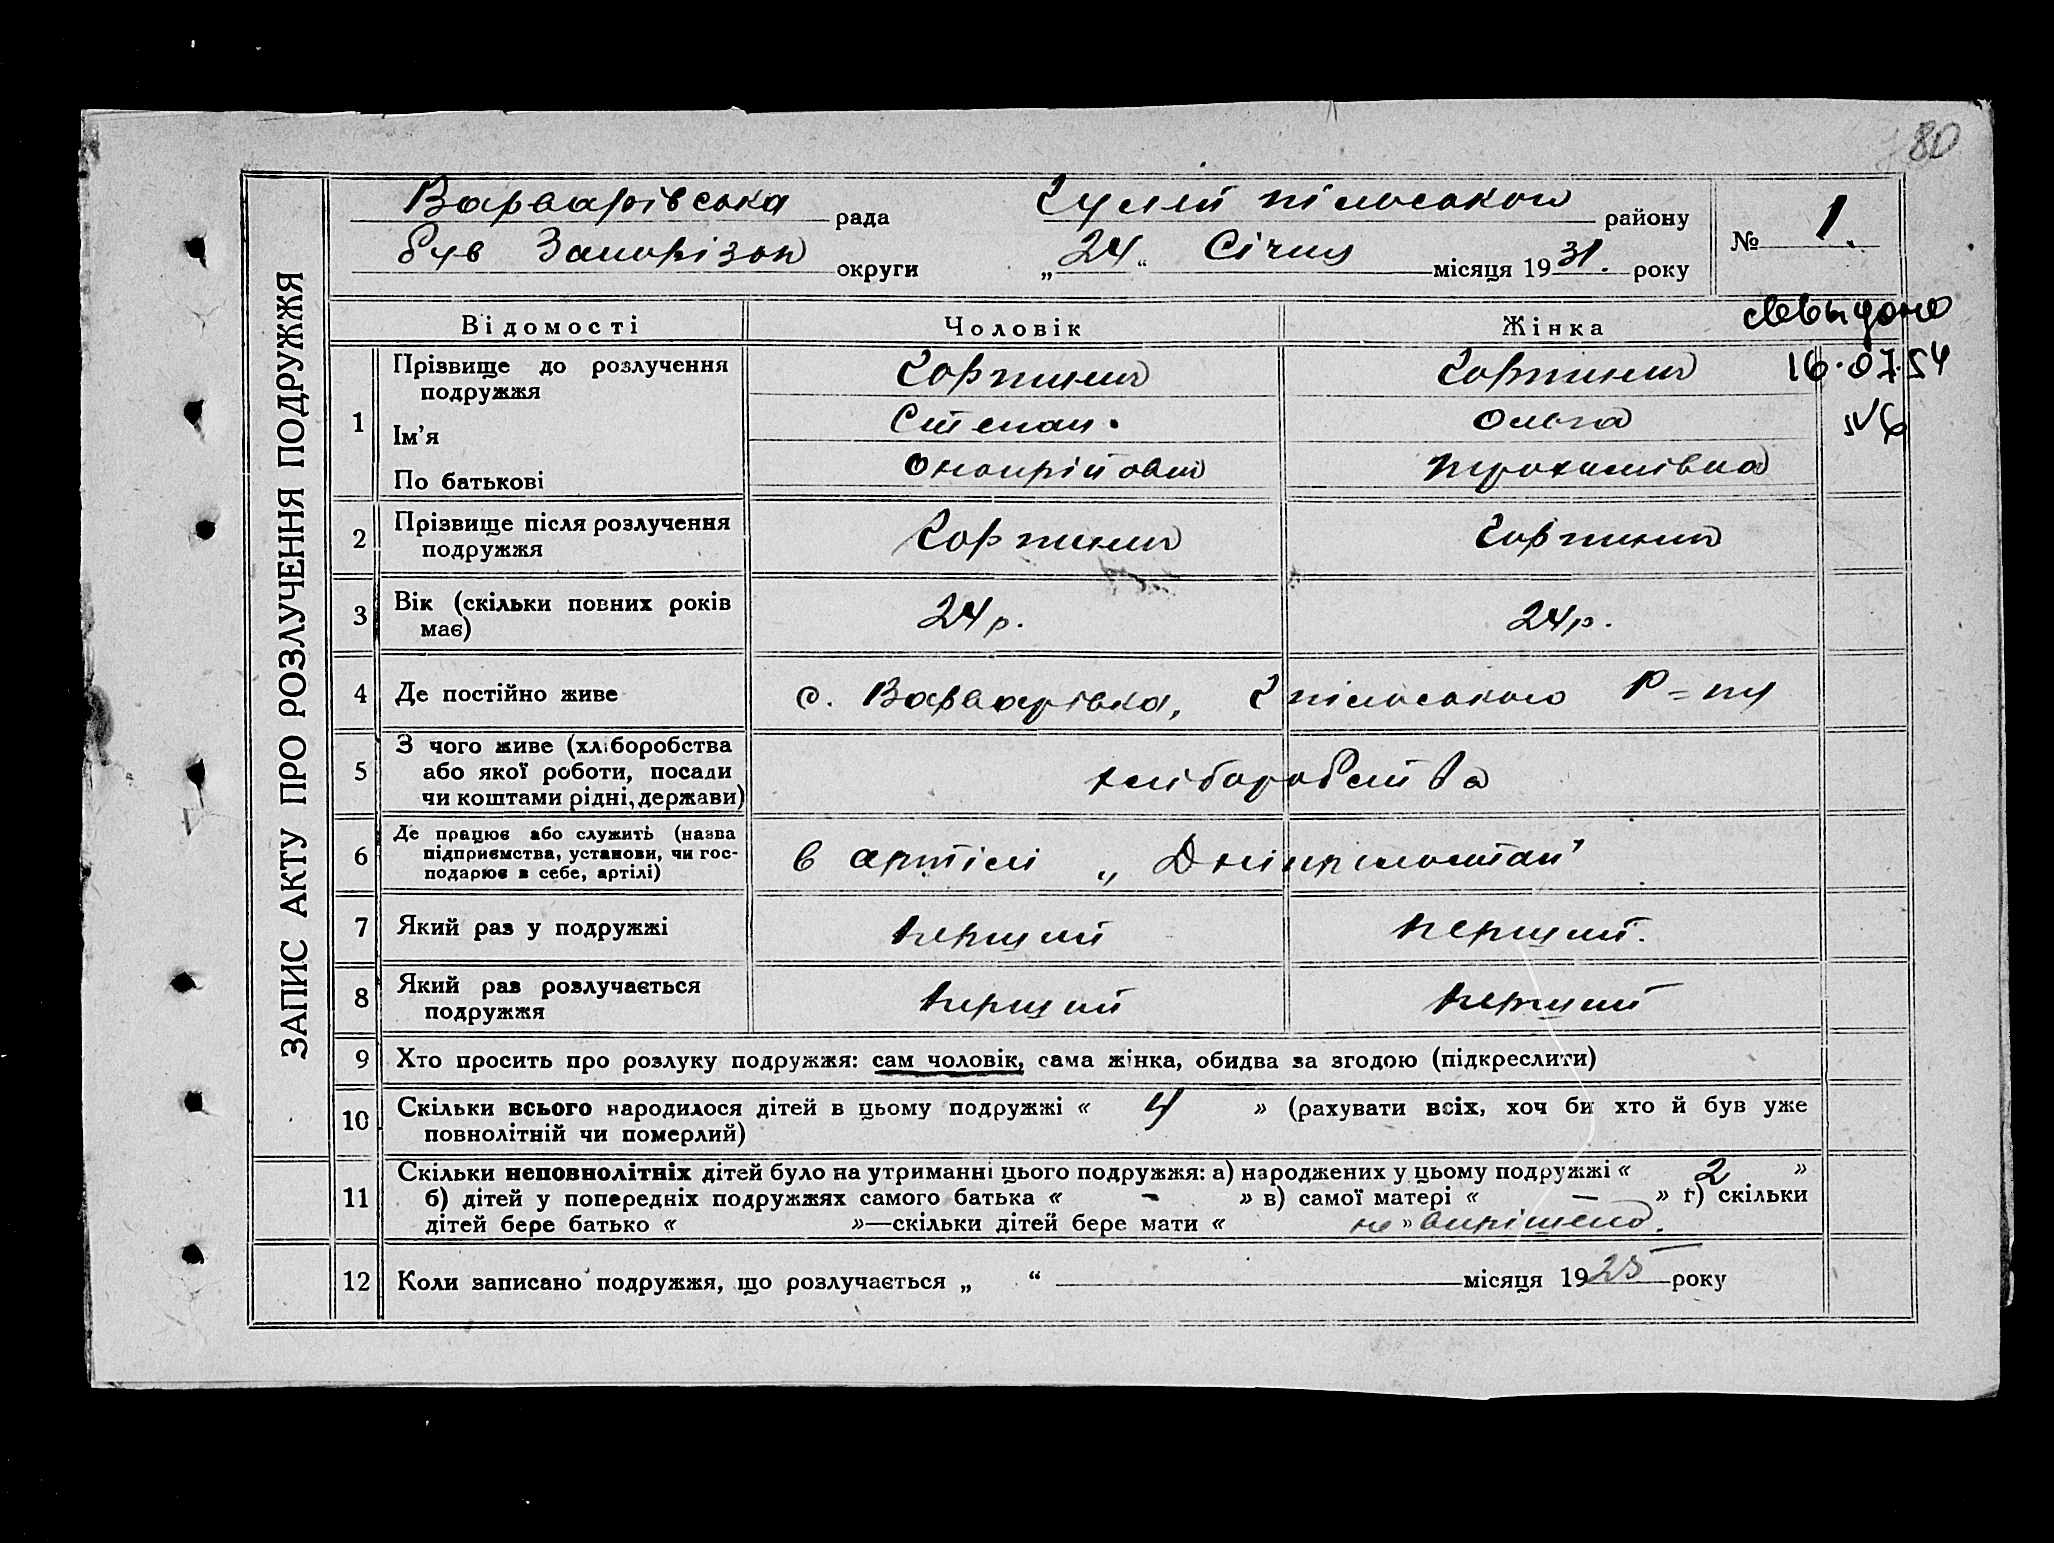 80
ЗАПИС АКТУ ПРО РОЗЛУЧЕННЯ ПОДРУЖЖЯ
Варварівська рада Гуляйпільського району № 1.
був Запорізьк округи „24“ Січня місяця 1931. року
Відомості Чоловік Жінка
16.07.54
1 Прізвище до розлучення подружжя
Ім'я Степан. Ольга
По батькові Онопрійович Трохимівна
2 Прізвище після розлучення подружжя
3 Вік (скільки повних років має) 24 р. 24 р.
4 Де постійно живе с. Варварівка, Гпільського Р=ну
5 З чого живе (хліборобства або якої роботи, посади чи коштами рідні, держави) хліборобства
6 Де працює або служить (назва підприємства, установи, чи господарює в себе, артілі) в артілі „
7 Який раз у подружжі перший перший.
8 Який раз розлучається подружжя перший перший
9 Хто просить про розлуку подружжя: сам чоловік, сама жінка, обидва за згодою (підкреслити)
10 Скільки всього народилося дітей в цьому подружжі « 4 » (рахувати всіх, хоч би хто й був уже
повнолітній чи померлий)
11 Скільки неповнолітніх дітей було на утриманні цього подружжя: а) народжених у цьому подружжі « 2 »
б) дітей у попередніх подружжях самого батька « - » в) самої матері « — » г) скільки
дітей бере батько « »—скільки дітей бере мати « не » вирішено.
12 Коли записано подружжя, що розлучається „ “ місяця 1925 року